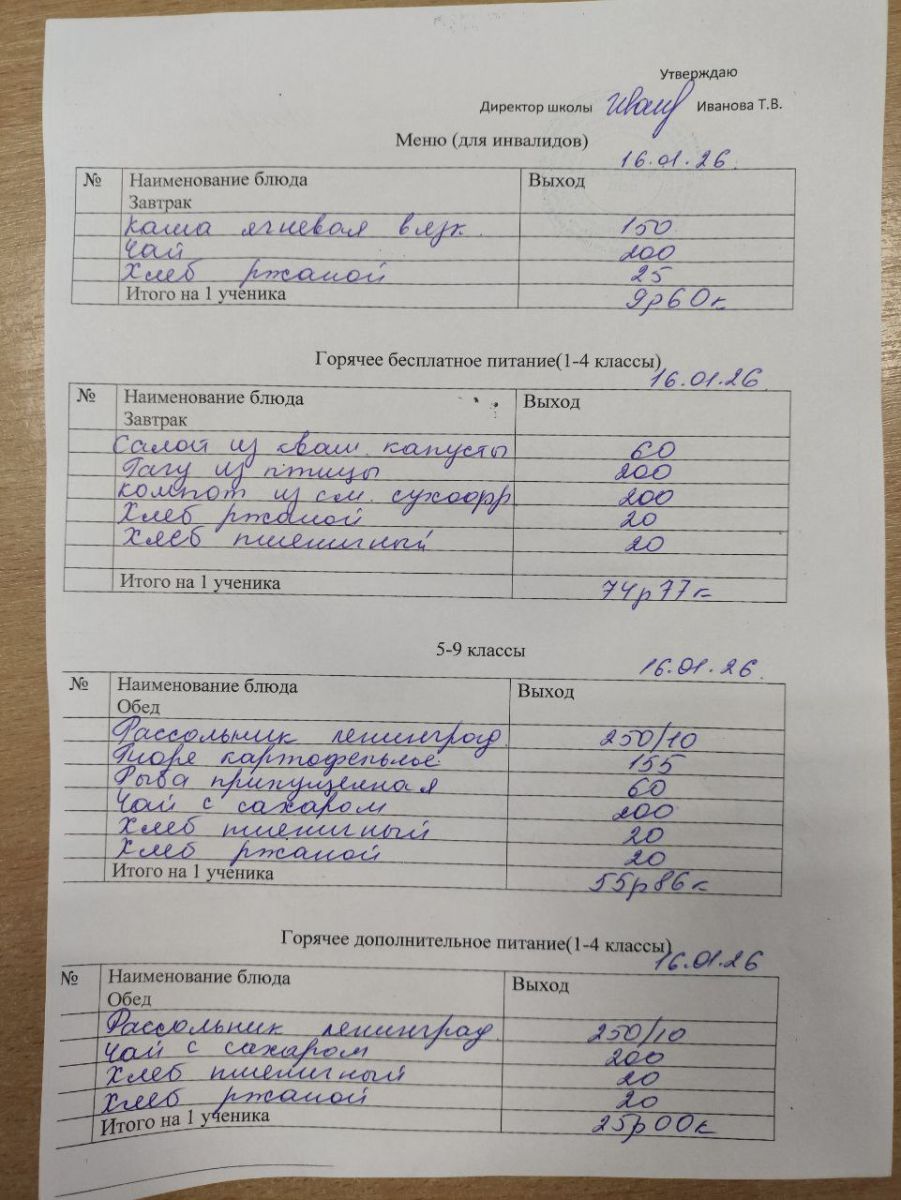 Утверждаю
Директор школы Иванова Т.В.
Меню (для инвалидов)
16.01.26.
№ Наименование блюда Выход
Завтрак
Каша ячневая вязк. 150
Чай 200
Хлеб ржаной 25
Итого на 1 ученика 9р60к
Горячее бесплатное питание(1-4 классы)
16.01.26.
№ Наименование блюда Выход
Завтрак
Салат из кваш. капусты 60
Рагу из птицы 200
Компот из см. сухофр 200
Хлеб ржаной 20
Хлеб пшеничный 20
Итого на 1 ученика 74р77к
5-9 классы
16.01.26.
№ Наименование блюда Выход
Обед
Рассольник ленинград. 250/10
Пюре картофельное 155
Рыба припущенная 60
Чай с сахаром 200
Хлеб пшеничный 20
Хлеб ржаной 20
Итого на 1 ученика 55р86к
Горячее дополнительное питание(1-4 классы)
16.01.26
№ Наименование блюда Выход
Обед
Рассольник ленинград. 250/10
Чай с сахаром 200
Хлеб пшеничный 20
Хлеб ржаной 20
Итого на 1 ученика 25р00к